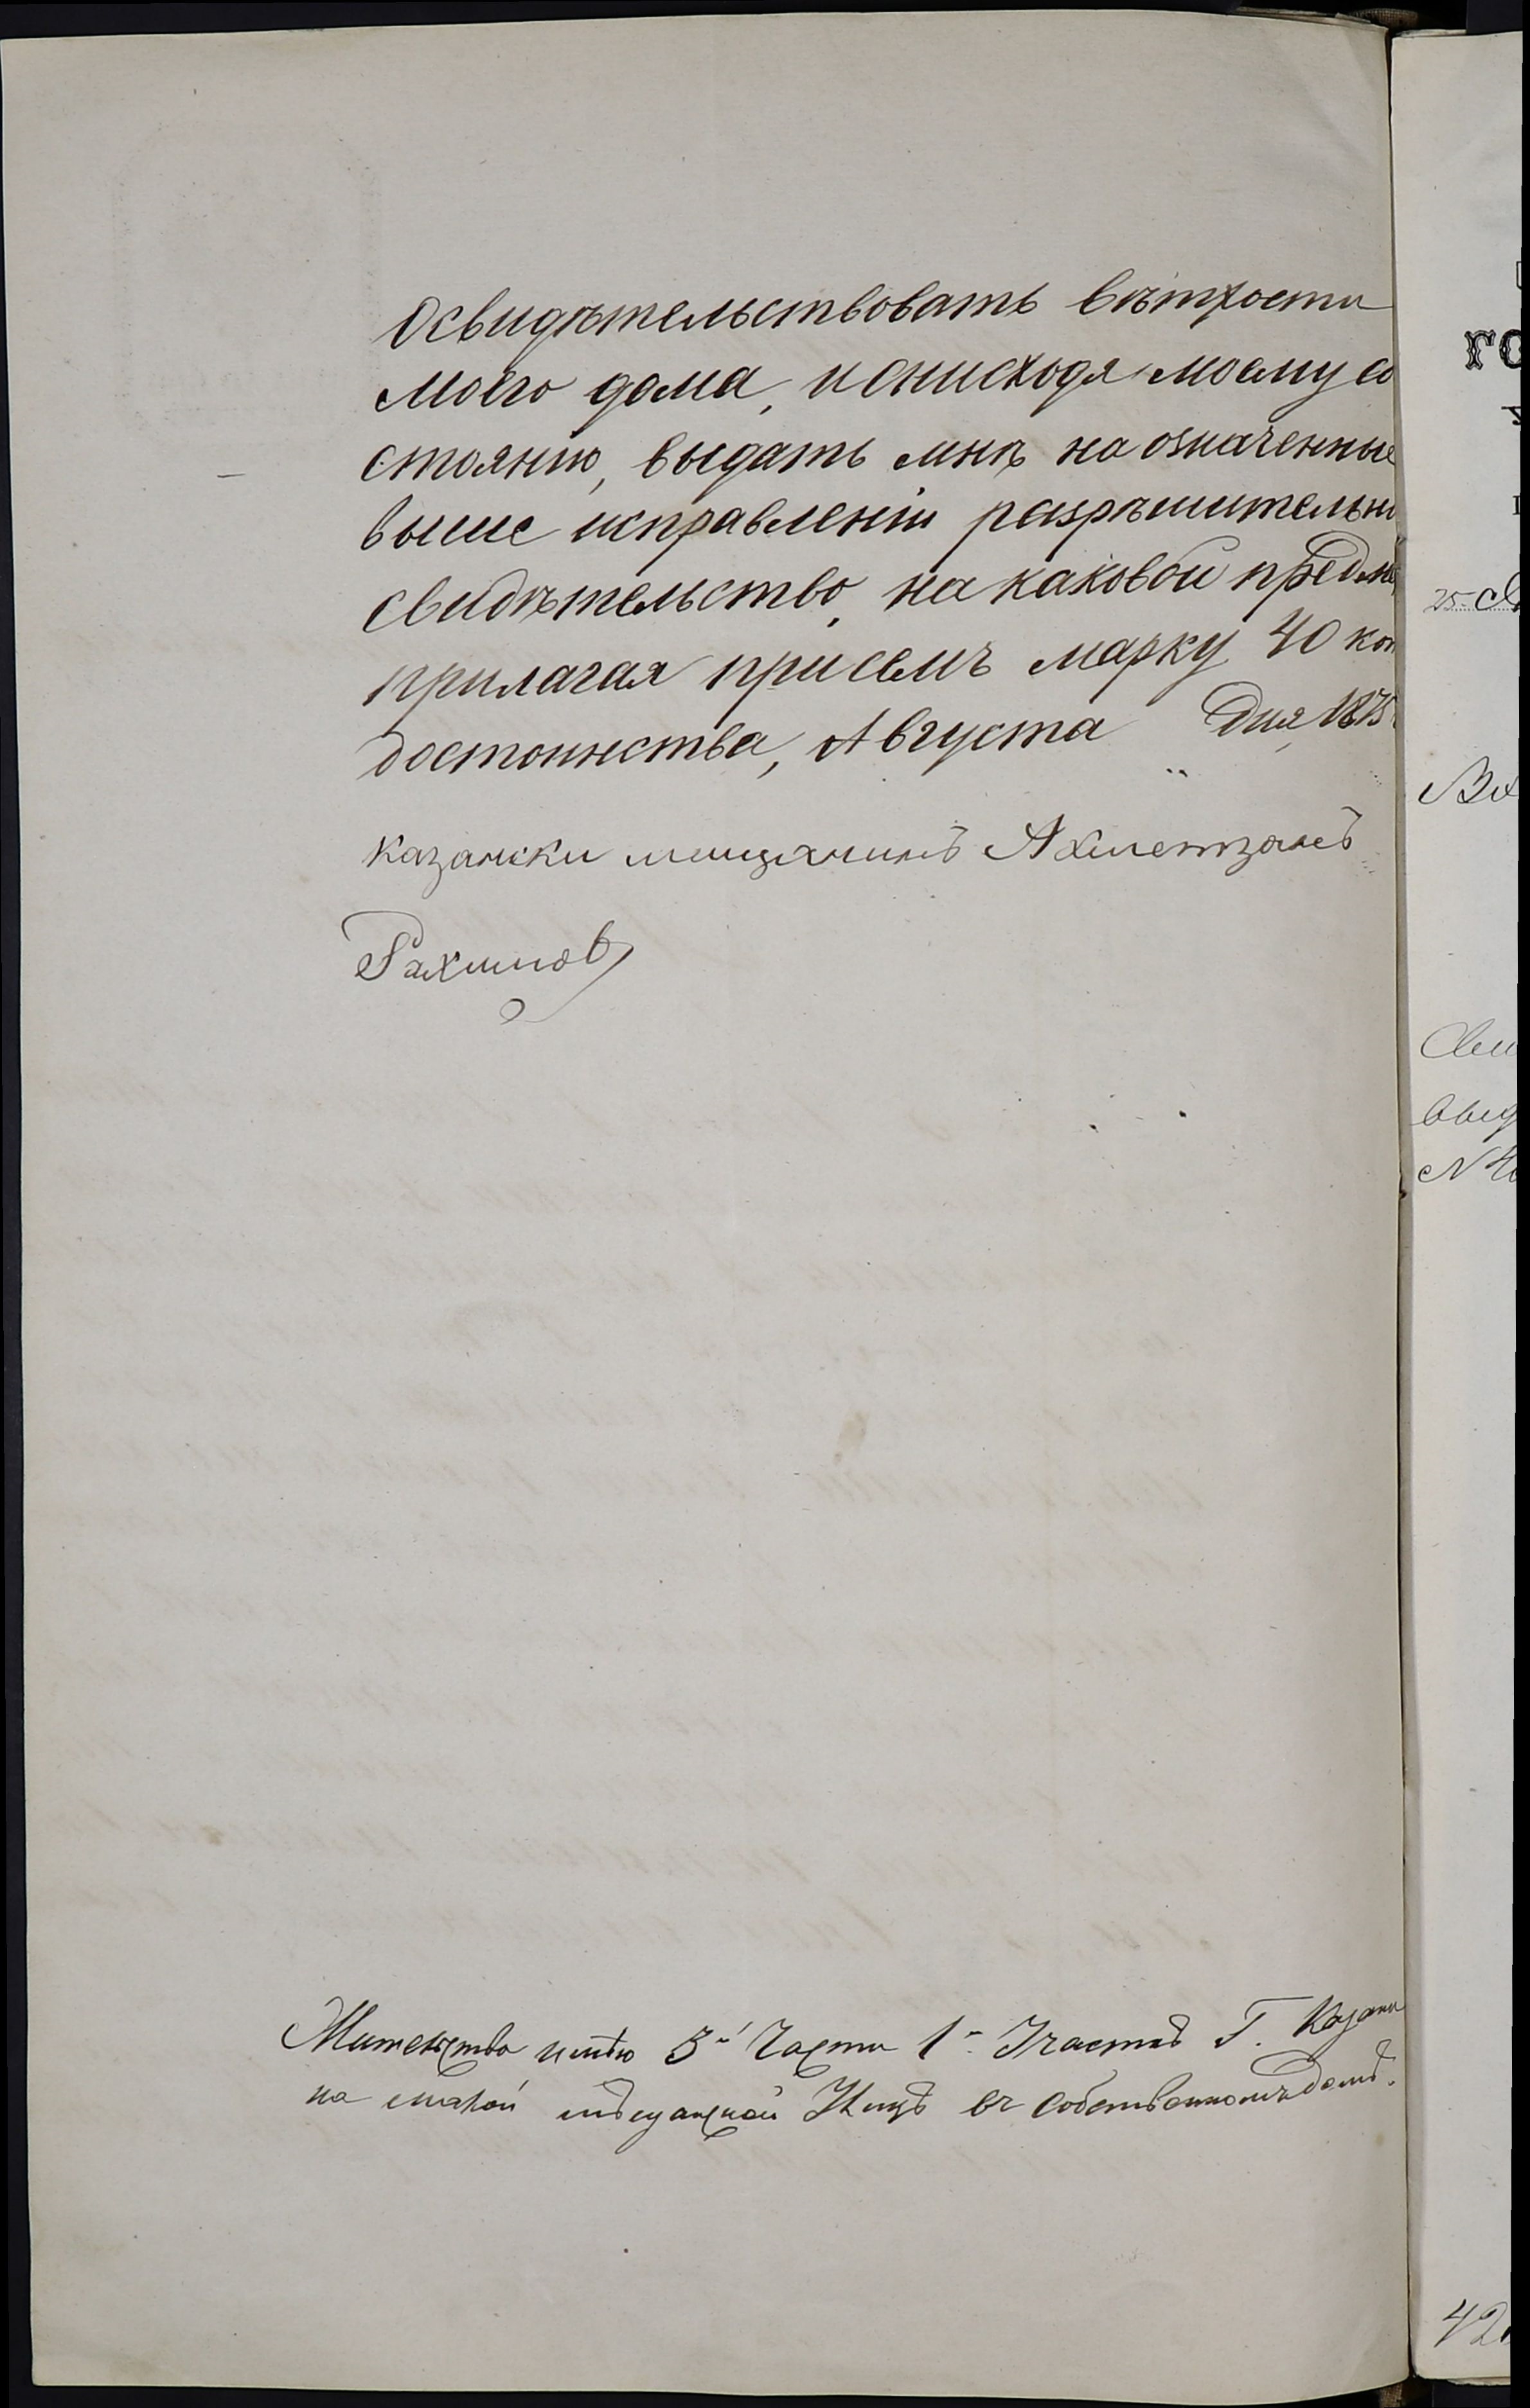 Освидѣтельствовать вѣтхости
моего дома, и снисходя моему со
стоянію, выдать мнѣ на означенные
выше исправленіи разрѣшительно
свидѣтельство, на каковой предме
прилагая присемъ марку 40 коп
достоинства, Августа " Дня 1875
казански мещанинъ Ахметзянъ
Рахимов
Жительство имѣю 3й Части 1 Участкѣ Г. Казани
на малой мѣщанской Улицѣ въ собственномъ домѣ.
ГО
25
Вх
выд
N
42